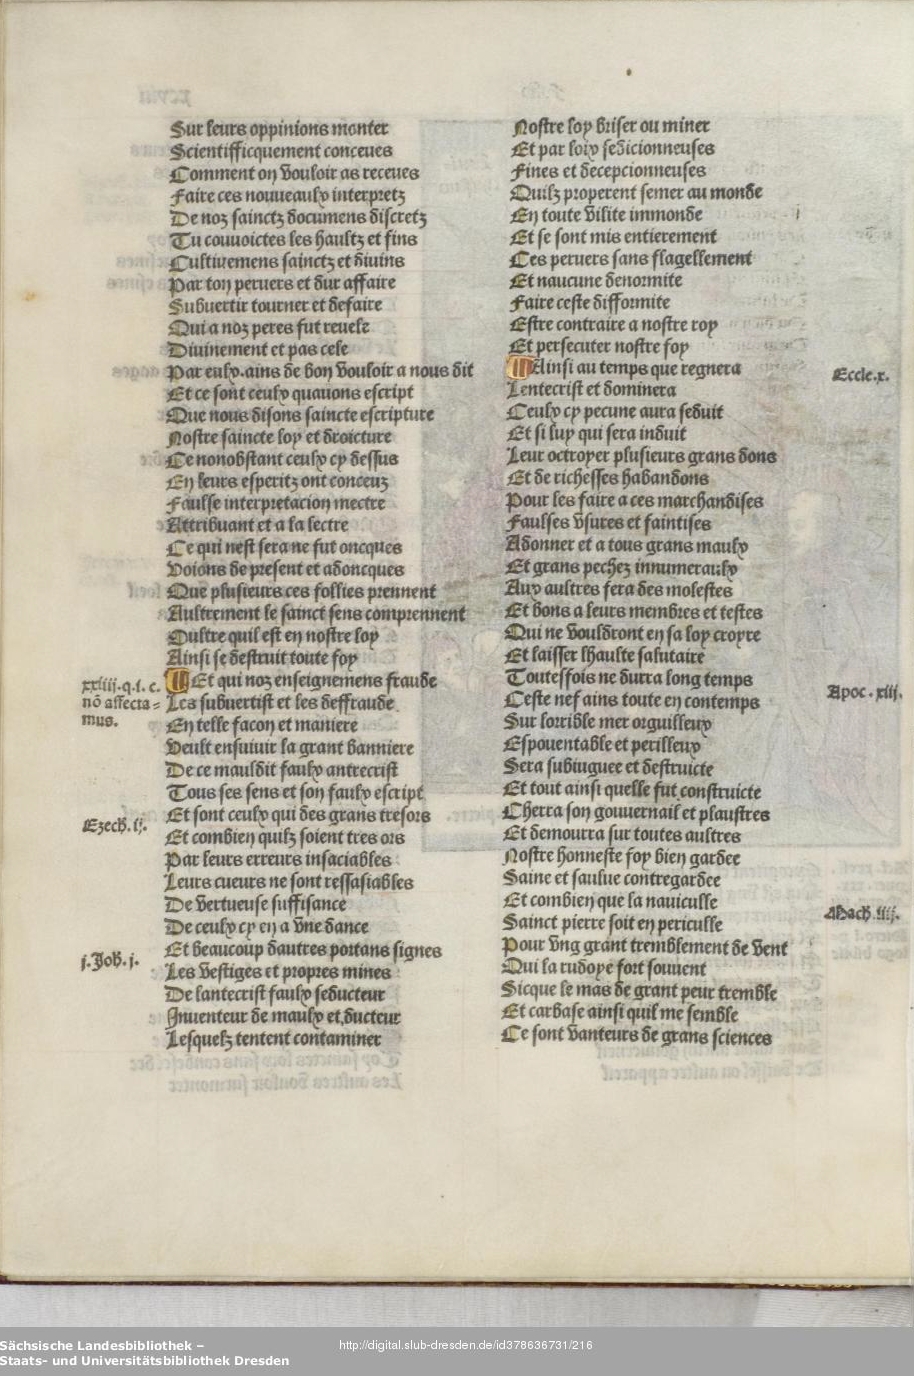 Sur leurs oppinions monter
Scientifficquement conceues
Comment on vouloir as receues
Faire ces nouueaulx interpretz
De noz sainctz documens discretz
Tu couuoictes les haultz et fins
Cultiuemens sainctz et diuins
Par ton peruers et dur affaire
Subuertir tourner et defaire
Qui a noz peres fut reuele
Diuinement et pas cele
Par eulx.ains de bon vouloir a nous dit
Et ce sont ceulx quauons escript
Que nous disons saincte escripture
Nostre saincte loy et droicture
Ce nonobstant ceulx cy dessus
En leurs esperitz ont conceuz
Faulse interpretacion mectre
Attribuant et a la lectre
Ce qui nest sera ne fut oncques
Voions de present et adoncques
Que plusieurs ces follies prennent
Aultrement le sainct sens comprennent
Oultre quil est en nostre loy
Ainsi se destruit toute foy
xxiiii.q.i.c.
nō affecta=
mus.
Et qui noz enseignemens fraude
Les subuertist et les deffraude
En telle facon et maniere
Veult ensuiuir la grant banniere
De ce mauldit faulx antrecrist
Tous ses sens et son faulx escript
Et sont ceulx qui des grans tresors
Ezech.ij.
Et combien quilz soient tres ors
Par leurs erreurs insaciables
Leurs cueurs ne sont ressasiables
De vertueuse suffisance
De ceulx cy en a vne dance
Et beaucoup dautres portans signes
j.Joh.j.
Les vestiges et propres mines
De lantecrist faulx seducteur
Inuenteur de maulx et ducteur
Lesquelz tentent contaminer
Nostre loy briser ou miner
Et par loix sedicionneuses
Fines et decepcionneuses
Quilz properent semer au monde
En toute vilite immonde
Et se sont mis entierement
Ces peruers sans flagellement
Et naucune denormite
Faire ceste difformite
Estre contraire a nostre roy
Et persecuter nostre foy
Ainsi au temps que regnera
Eccle.x.
Lentecrist et dominera
Ceulx cy pecune aura seduit
Et si luy qui sera induit
Leur octroyer plusieurs grans dons
Et de richesses habandons
Pour les faire a ces marchandises
Faulses vsures et faintises
Adonner et a tous grans maulx
Et grans pechez innumeraulx
Aux aultres fera des molestes
Et bons a leurs membres et testes
Qui ne vouldront en sa loy croyre
Et laisser lhaulte salutaire
Toutesfois ne durra long temps
Apoc.xiij.
Ceste nef ains toute en contemps
Sur lorrible mer orguilleux
Espouentable et perilleux
Sera subiuguee et destruicte
Et tout ainsi quelle fut construicte
Cherra son gouuernail et plaustres
Et demourra sur toutes aultres
Nostre honneste foy bien gardee
Saine et saulue contregardee
Et combien que la nauiculle
Mach.iiij.
Sainct pierre soit en periculle
Pour vng grant tremblement de vent
Qui la rudoye fort souuent
Sicque le mas de grant peur tremble
Et carbase ainsi quil me semble
Ce sont vanteurs de grans sciences
Sächsische Landesbibliothek –
Staats- und Universitätsbibliothek Dresden
http://digital.slub-dresden.de/id378636731/216